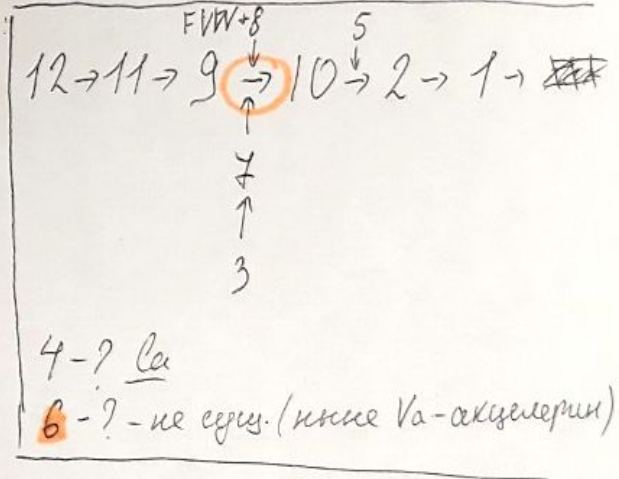 FVW+8 5
12→11→9→10→2→1→
↑
7
↑
3
4-? Ca
6-? - не сущ. (ныне Va-акцелерин)